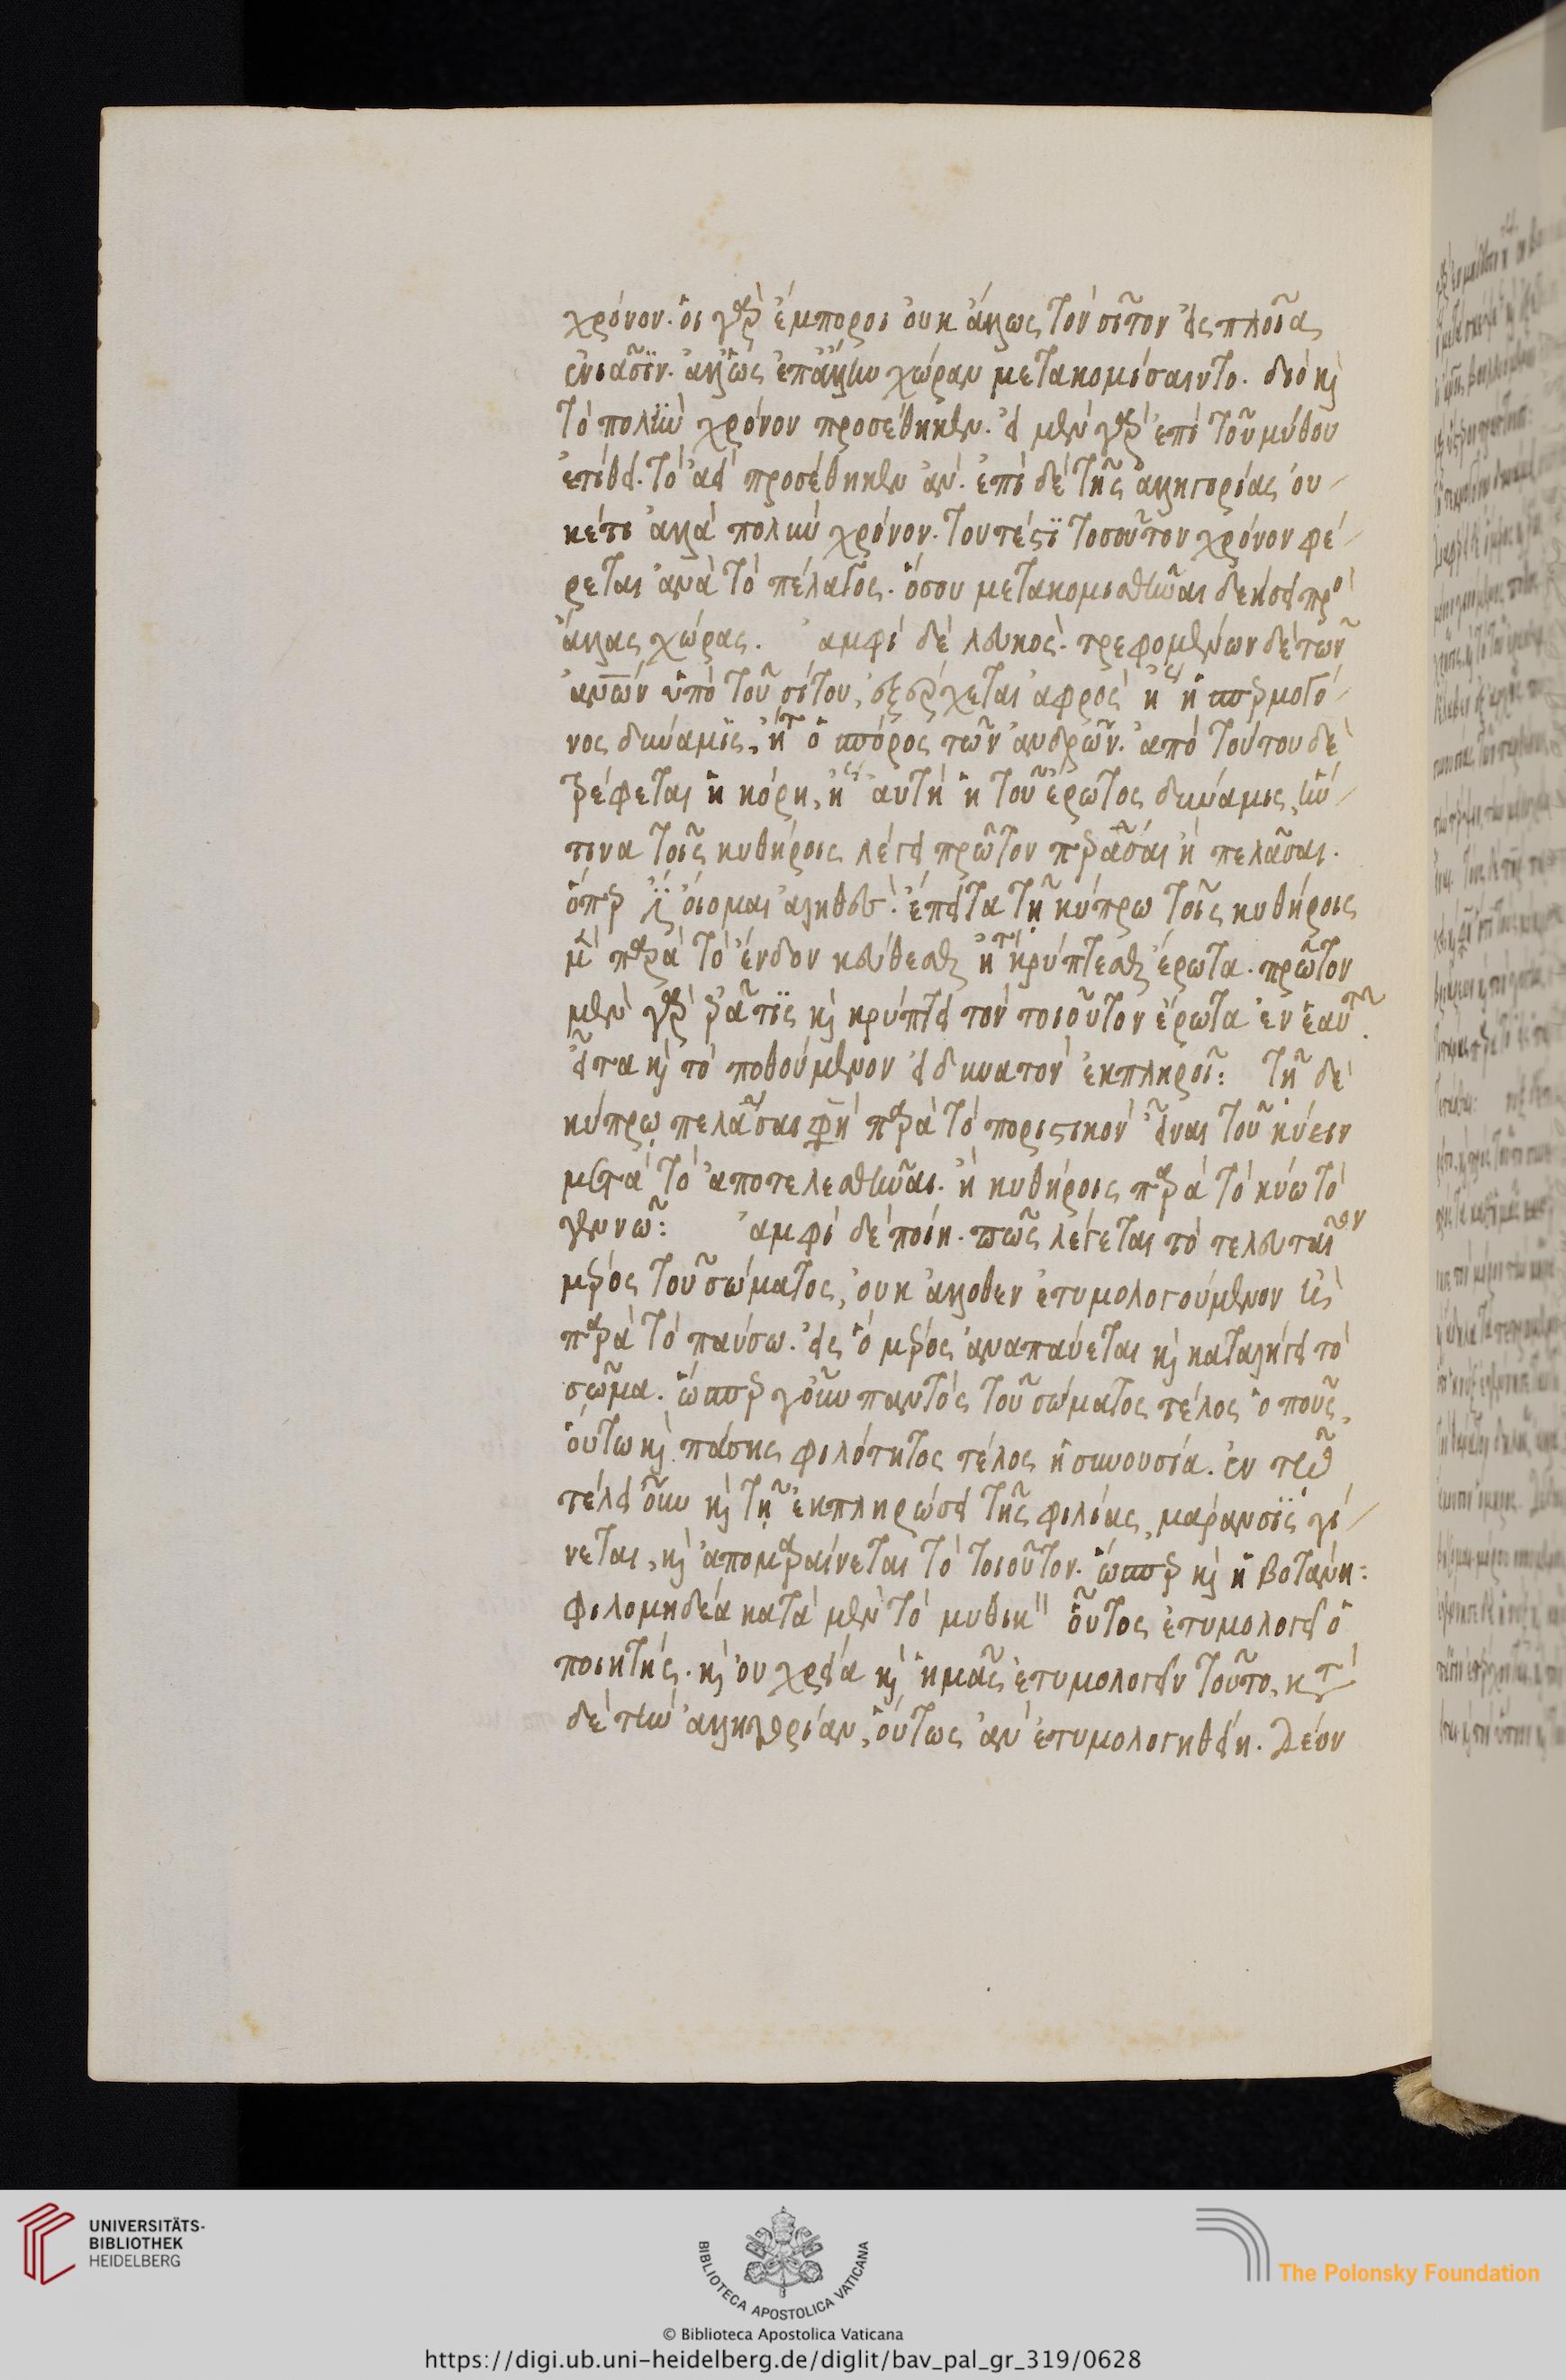 χρόνον. οἱ γὰρ ἔμποροι οὐκ ἄλλως τὸν σῖτον εἰς πλοῖα
ἐνιᾶσιν. ἀλλ' ὡς ἐπ' ἄλλην χώραν μετακομίσαιντο. διὸ καὶ
τὸ πολὺν χρόνον προσέθηκεν. εἰ μὲν γὰρ ἐπὶ τοῦ μύθου
ἐτίθει. τὸ ἀεὶ προσέθηκεν ἄν. ἐπὶ δὲ τῆς ἀλληγορίας οὐ
κέτι ἀλλὰ πολὺν χρόνον. τουτέστι τοσοῦτον χρόνον φέ
ρεται ἀνὰ τὸ πέλαγος. ὅσον μετακομισθῆναι δεήσει πρὸ
ἄλλας χώρας. ἀμφὶ δὲ λευκὸς. τρεφομένων δὲ τῶν
ἀνῶν ὑπὸ τοῦ σίτου, ἐξέρχεται ἀφρὸς ἤτοι ἡ σπερμογό
νος δύναμις, ἤτοι ὁ σπόρος τῶν ἀνδρῶν. ἀπὸ τούτου δὲ
τρέφεται ἡ κόρη, ἤτοι αὐτὴ ἡ τοῦ ἔρωτος δύναμις, ἥν
τινα τοῖς κυθήροις λέγει πρῶτον περᾶσαι ἢ πελᾶσαι.
ὅπερ καὶ οἴομαι ἀληθὲς. ἔπειτα τῇ κύπρω τοῖς κυθήροις
μὲν παρὰ τὸ ἔνδον κεύθεσθαι ἤτοι κρύπτεσθαι ἔρωτα. πρῶτον
μὲν γὰρ ἐρᾷ τις καὶ κρύπτει τὸν τοιοῦτον ἔρωτα ἐν ἑαυτῷ
εἶτα καὶ τὸ ποθούμενον εἰ δυνατὸν ἐκπληροῖ: τῇ δὲ
κύπρῳ πελᾶσαι φησὶ παρὰ τὸ ποριστικὸν εἶναι τοῦ κύειν
μετὰ τὸ ἀποτελεσθῆναι. ἢ κυθήροις παρὰ τὸ κύω τὸ
γεννῶ: ἀμφὶ δὲ ποίη. πῶς λέγεται τὸ τελευταῖον
μέρος τοῦ σώματος, οὐκ ἄλλοθεν ἐτυμολογούμενον ἢ
παρὰ τὸ παύσω. εἰς ὃ μέρος ἀναπαύεται καὶ καταλήγει τὸ
σῶμα. ὥσπερ γοῦν παντὸς τοῦ σώματος τέλος ὁ ποῦς,
οὕτω καὶ πάσης φιλότητος τέλος ἡ συνουσία. ἐν τῶ
τέλει οὖν καὶ τῇ ἐκπληρώσει τῆς φιλίας, μάρανσις γί
νεται, καὶ ἀπομαραίνεται τὸ τοιοῦτον. ὥσπερ καὶ ἡ βοτάνη:
Φιλομηδέα κατὰ μὲν τὸ μυθικὸν οὗτος ἐτυμολογεῖ ὁ
ποιητής. καὶ οὐ χρεία καὶ ἡμᾶς ἐτυμολογεῖν τοῦτο, κατὰ
δὲ τὴν ἀλληγορίαν, οὕτως ἂν ἐτυμολογηθείη. Δέον
UNIVERSITÄTS-
BIBLIOTHEK
HEIDELBERG
BIBLIOTECA APOSTOLICA VATICANA
The Polonsky Foundation
© Biblioteca Apostolica Vaticana
https://digi.ub.uni-heidelberg.de/diglit/bav_pal_gr_319/0628